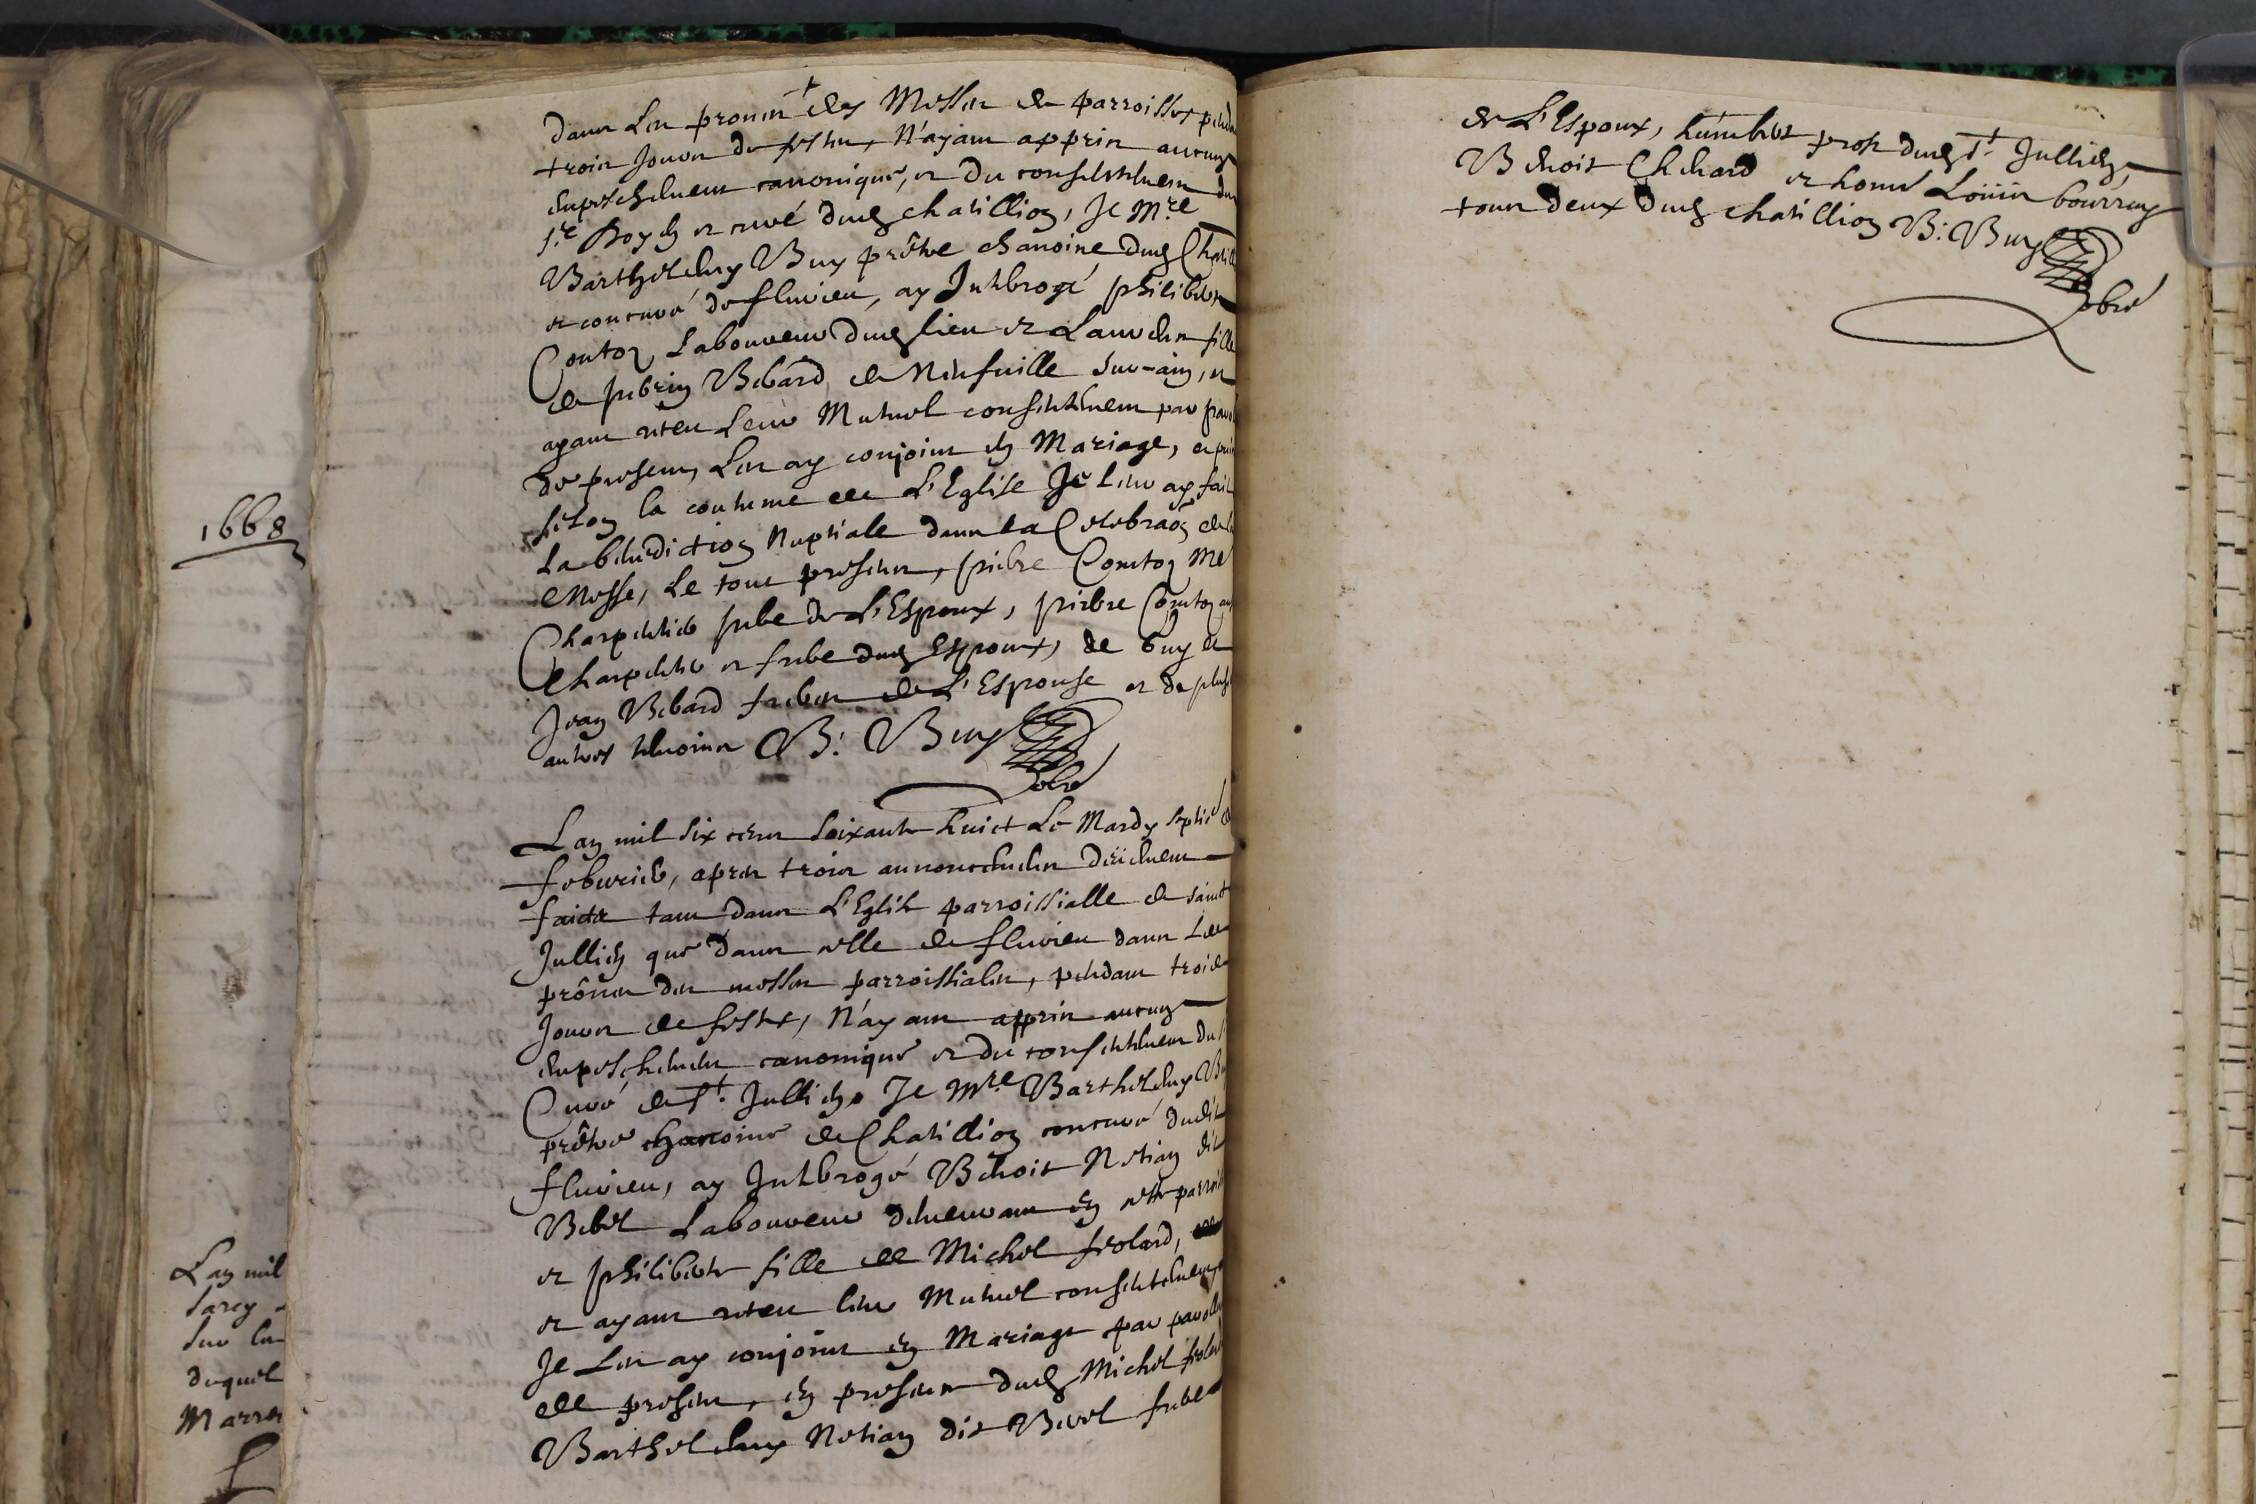 dans les prosnes des Messes de parroisses pend
trois Jours de festes, N'ayant appris aucung
empeschement canonique, et du consentement du
Sr. Doyen et curé dud Chatillion, Je Mre
Barthelemy Buy prêtre chanoine dud Chatill
et concuré de flurieu, ay Interrogé philibert
Conton Laboureur dud lieu et Laurence fille
de Bérard de Neufville sur-ain, et
ayant receu Leur Mutuel consentement par paro
de present, Les ay conjoint en Mariage, et puis
selon la coutume de L'Eglise Je leur ay fait
La benediction Nuptiale dans la Celebraõn de la
Messe, Le tout presents, pierre Comton Me
Charpentier pere de L'Espoux, pierre Comton au
Charpentier et frere dud Espoux, de Guy et
Jean Berard freres de L'Espouse et de plus
autres tesmoins B: Buy
1668
Lan mil six cents soixante huict Le Mardy septie
febvrier, apres trois annoncements deüement
faicte tant dans L'Eglise parroissialle de sainct
Jullien que dans celle de flurieu dans Les
prônes des messes parroissiales, pendant trois
Jours de festes, N'ayant appris aucung
empeschement canonique et du consentement du S
Curé de St. Jullien, Je Mre Barthelemy Bu
prêtre chanoine de Chatillion concuré dudit
flurieu, ay Interrogé Benoit Nesian dit
Berel Laboureur demeurant en cette parroiss
et philiberte fille de Michel frolard,
et ayant receu leur Mutuel consentement
Je Les ay conjoint en Mariage par parolle
de present, en presence dud Michel frolar
Barthelemy Nesian dit Berel frere
Lan mil
Sur la
duquel
Marre
de L'Espoux, humbert dud St. Jullien,
Benoit Chenard et honné Loüis bourray
tous deux dud Chatillion B: Buy